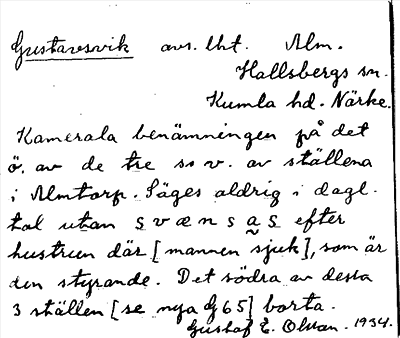 Gustavsvik avs. lht. Alm.
Hallsbergs sn.
Kumla hd. Närke.
Kamerala benämningen på det
ö. av de tre so v. av ställena
i Almtorp. Säges aldrig i dagl.
tal utan svænsas efter
hustrun där [mannen sjuk], som är
den styrande. Det södra av dessa
3 ställen [se nya G65] borta.
Gustaf E. Olsson. 1934.